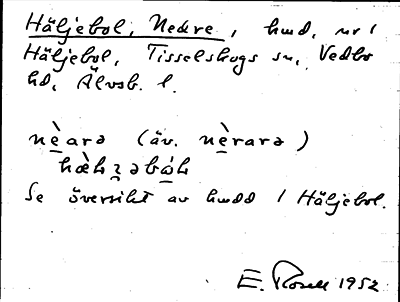 Häljebol, Nedre, hmd, nr 1
Häljebol, Tisselskogs sn, Vedbo
hd, Älvsb. l.
nèarə (äv. nèrarə)
Se översikt av hmdd i Häljebol.
E. Rosell 1952